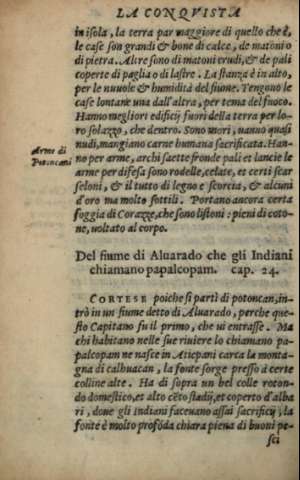 LA CONQVISTA
in isola, la terra par maggiore di quello che è,
le case son grandi & bone di calce, de matoni o
di pietra. Altre sono di matoni crudi, & de pali
coperte di paglia o di lastre. La stanza è in alto,
per le nuuole & humidità del fiume. Tengono le
case lontane una dall'altra, per tema del fuoco.
Hanno megliori edificij fuori della terra per lo-
ro solazzo, che dentro. Sono mori, uanno quasi
nudi, mangiano carne humana sacrificata. Han-
Arme di
Potoncani
no per arme, archi saette fronde pali et lancie le
arme per difesa sono rodelle, celate, et certi scar
seloni, & il tutto di legno e scorcia, & alcuni
d'oro ma molto sottili. Portano ancora certa
foggia di Corazze, che sono listoni: pieni di coto-
ne, uoltato al corpo.
Del fiume di Aluarado che gli Indiani
chiamano papalcopam. cap. 24.
CORTESE poiche si partì di potoncan, in-
trò in un fiume detto di Aluarado, perche que-
sto Capitano fu il primo, che ui entrasse. Ma
chi habitano nelle sue riuiere lo chiamano pa-
palcopam ne nasce in Aticpani carca la monta-
gna di calhuacan, la fonte sorge presso à certe
colline alte. Ha di sopra un bel colle roton-
do domestico, et alto cẽto stadij, et coperto d'alba
ri, doue gli Indiani faceuano assai sacrificij, la
fonte è molto profõda chiara piena di buoni pe-
sci